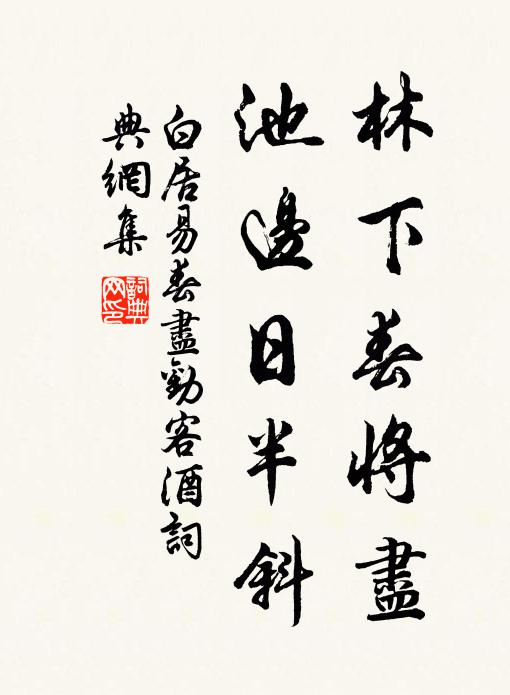 林下春將盡
池邊日半斜
白居易春盡勸客酒詞
典網集
詞典
网印